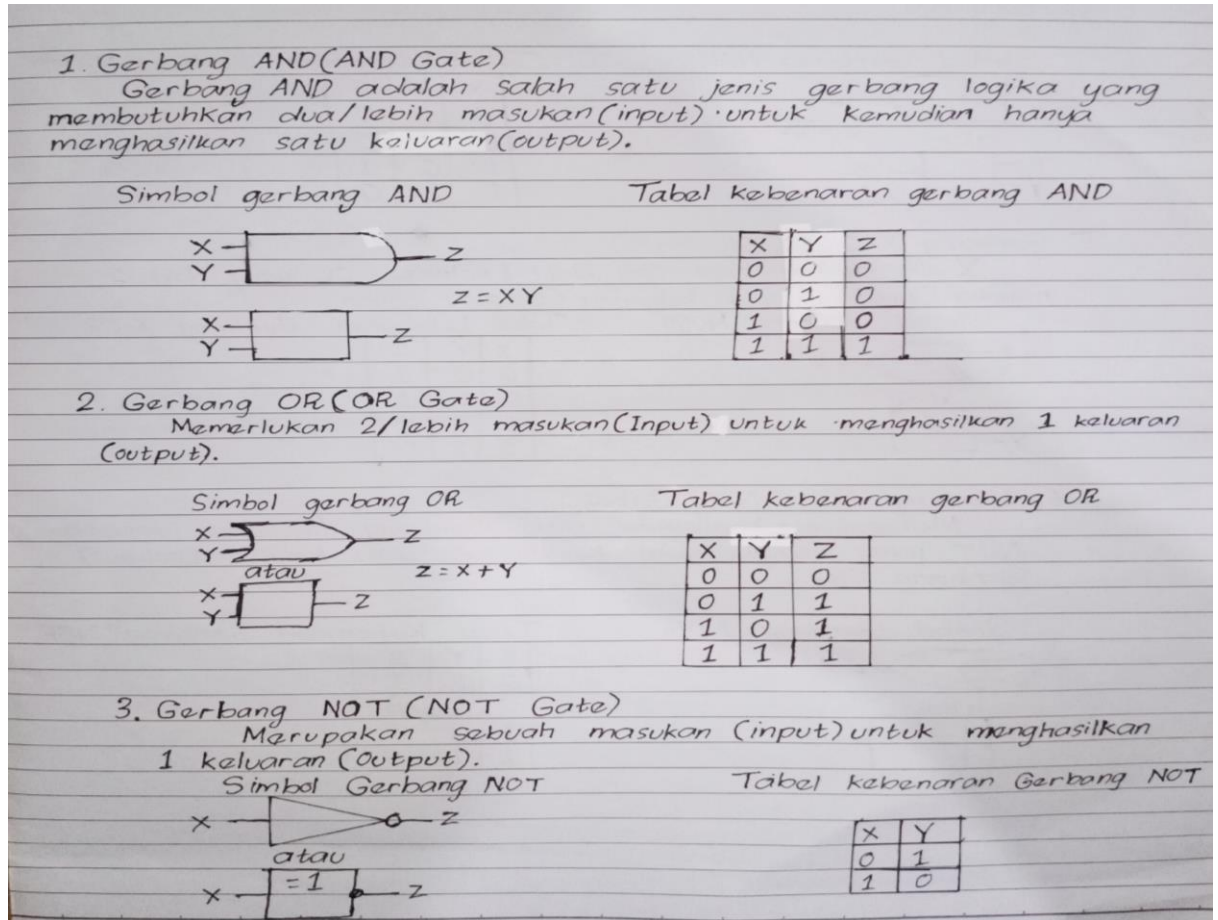 1. Gerbang AND (AND Gate)
Gerbang AND adalah salah satu jenis gerbang logika yang
membutuhkan dua/lebih masukan (input) untuk kemudian hanya
menghasilkan satu keluaran (output).
Simbol gerbang AND
X
Y
Z
Z = XY
X
Y
Z
Tabel kebenaran gerbang AND
X Y Z
0 0 0
0 1 0
1 0 0
1 1 1
2. Gerbang OR (OR Gate)
Memerlukan 2/lebih masukan (Input) untuk menghasilkan 1 keluaran
(output).
Simbol gerbang OR
X
Y
Z
atau
Z = X + Y
X
Y
Z
Tabel kebenaran gerbang OR
X Y Z
0 0 0
0 1 1
1 0 1
1 1 1
3. Gerbang NOT (NOT Gate)
Merupakan sebuah masukan (input) untuk menghasilkan
1 keluaran (Output).
Simbol Gerbang NOT
X
Z
atau
X
=1
Z
Tabel kebenaran Gerbang NOT
X Y
0 1
1 0